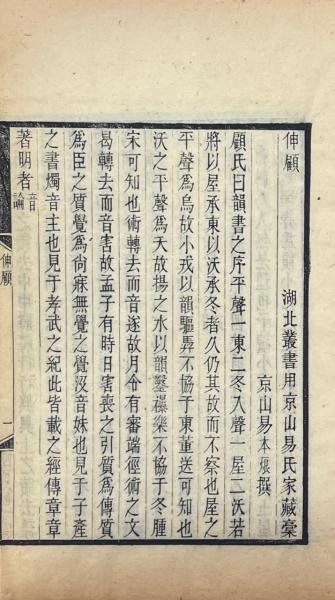 伸顧
湖北叢書用京山易氏家藏稾
京山易本烺撰
顧氏曰韻書之序平聲一東二冬入聲一屋二沃若
將以屋承東以沃承冬者久仍其故而不察也屋之
平聲爲烏故小戎以韻驅馵不協于東董送可知也
沃之平聲爲夭故揚之水以韻鑿襮樂不協于冬腫
宋可知也術轉去而音遂故月令有審端徑術之文
曷轉去而音害故孟子有時日害喪之引質爲傳質
爲臣之質覺爲尚寐無覺之覺沒音妹也見于子產
之書燭音主也見于孝武之紀此皆載之經傳章章
著明者音論
伸顧
一